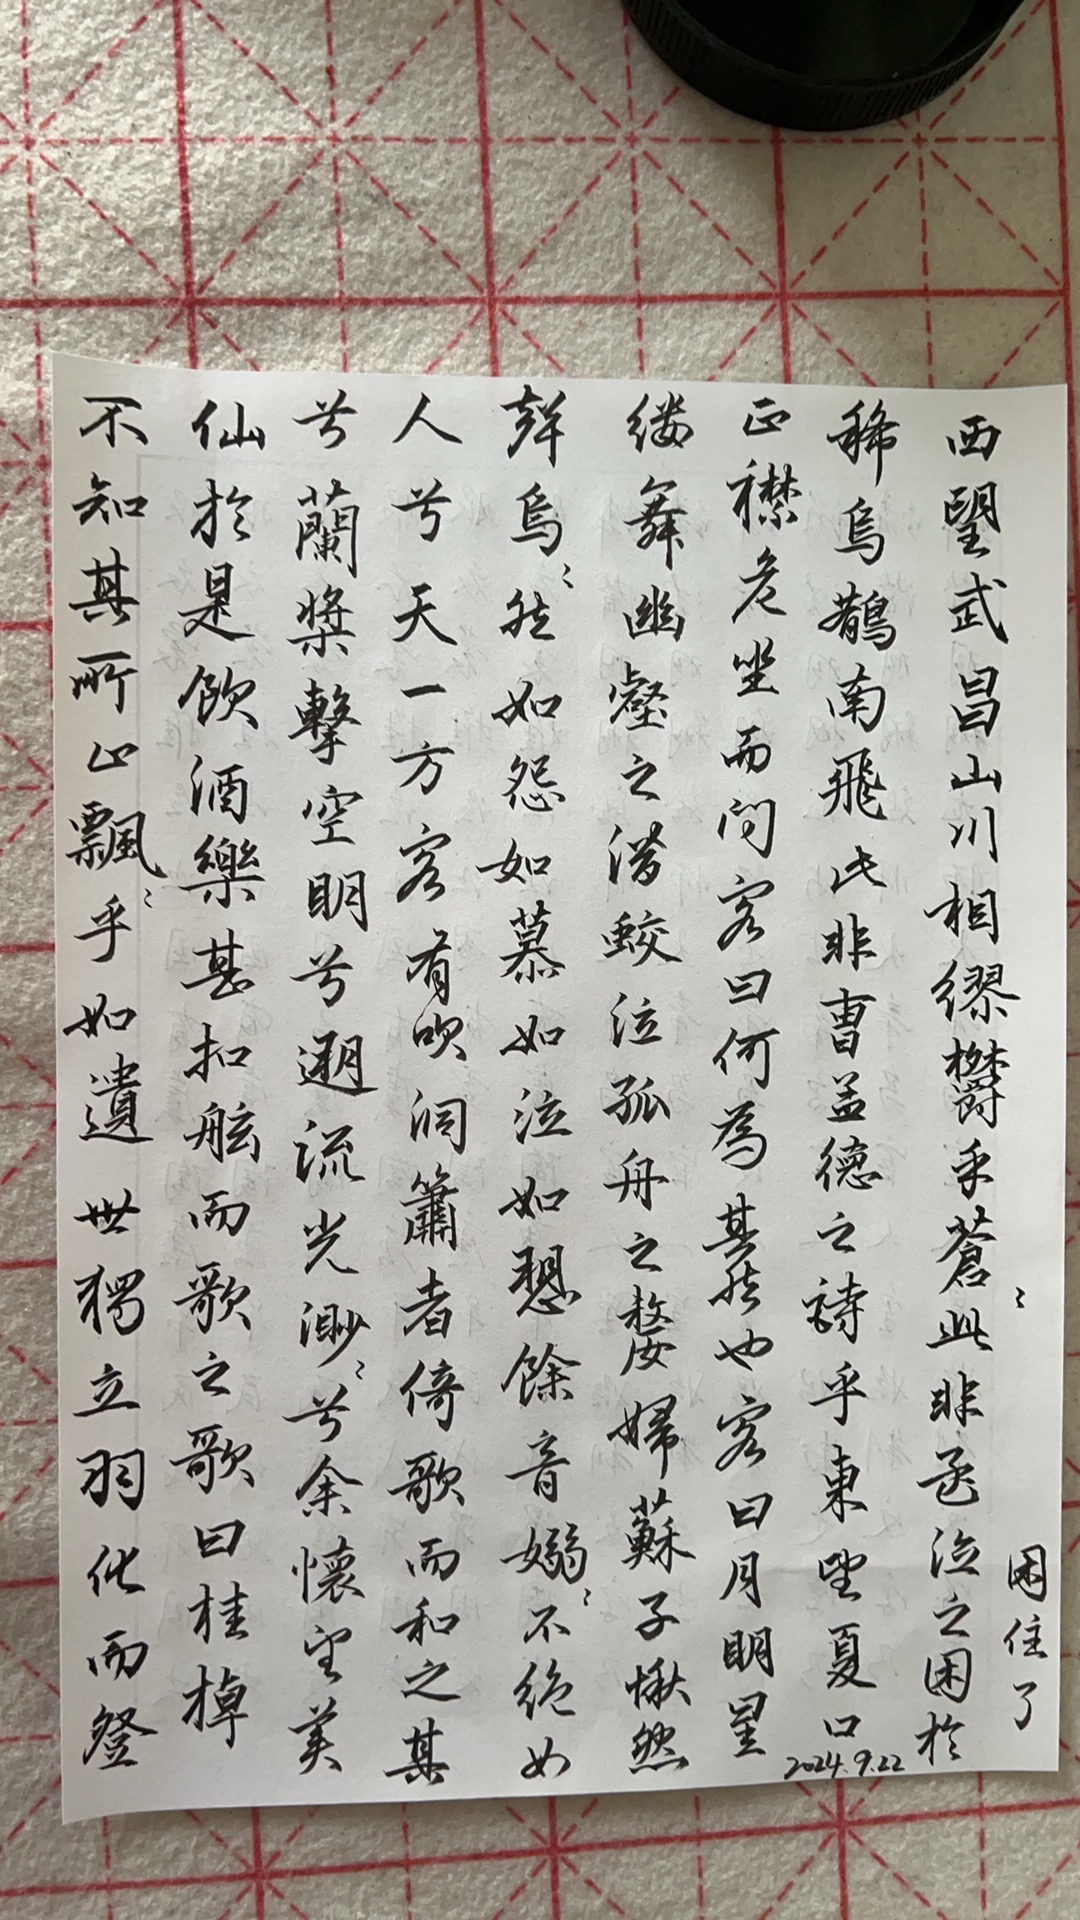 不知其所止飄〻乎如遺世獨立羽化而登
仙於是飲酒樂甚扣舷而歌之歌曰桂棹
兮蘭槳擊空明兮遡流光渺〻兮余懷望美
人兮天一方客有吹洞簫者倚歌而和之其
聲烏〻然如怨如慕如泣如愬餘音嫋〻不絕如
縷舞幽壑之潛蛟泣孤舟之嫠婦蘇子愀然
正襟危坐而問客曰何為其然也客曰月明星
稀烏鵲南飛此非曹孟德之詩乎東望夏口
西望武昌山川相繆欝乎蒼〻此非泣之困於
困住了
2024.9.22